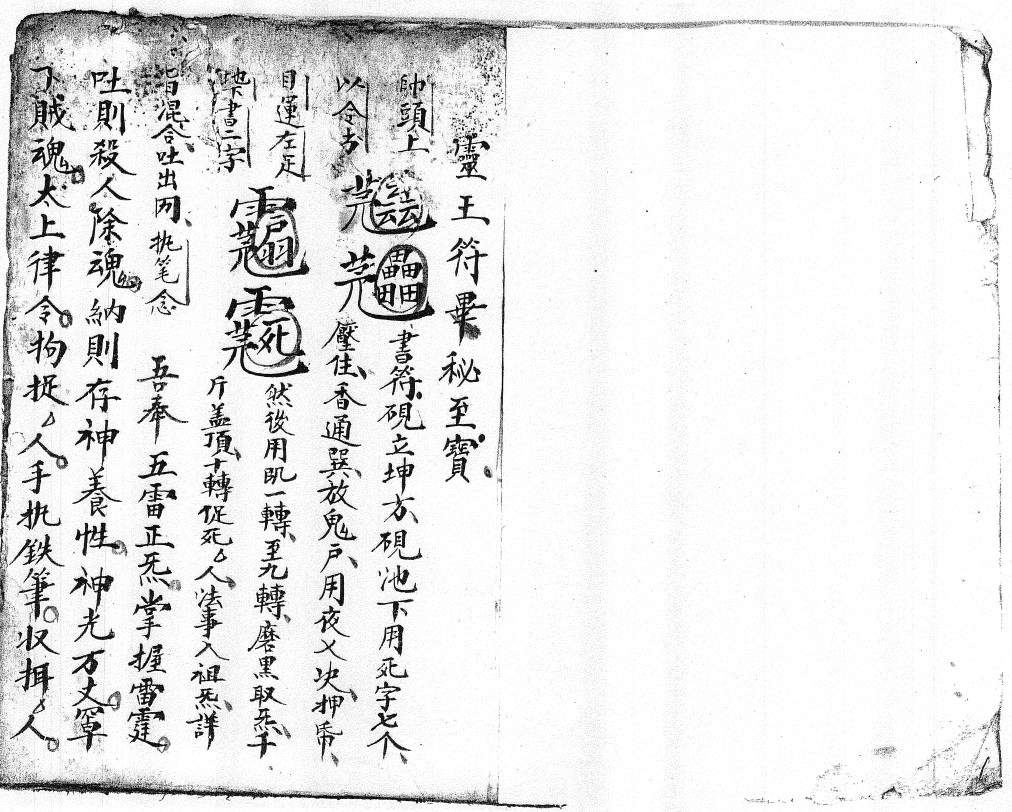 靈王符畢秘至寶
帥頭上 書符硯立坤方硯池下用死字七个
以令古 壓住香通巽放鬼戶用夜乂决押
目運左足 然後用 一轉至九轉磨黑取炁千
書二字 斤蓋頂十轉促死厶人法事入祖炁詳
皆混合吐出 执笔念 吾奉五雷正炁掌握雷霆
吐則殺人除魂納則存神養性神光万丈罩
下賊魂太上律令拘捉厶人手执鉄筆収拜厶人